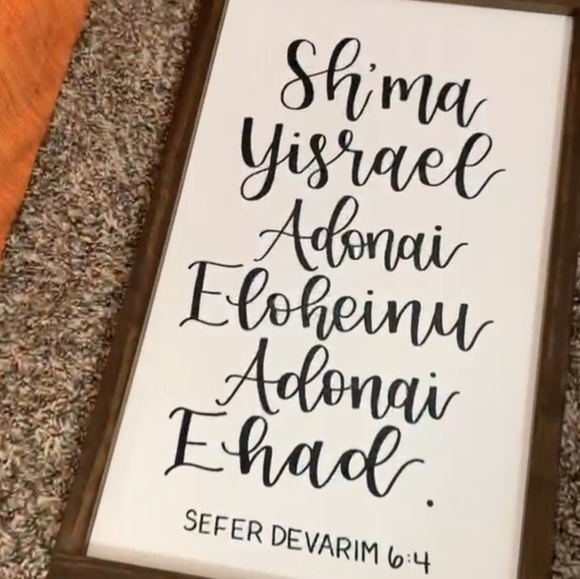 Sh'ma
Yisrael
Adonai
Eloheinu
Adonai
Ehad.
SEFER DEVARIM 6:4